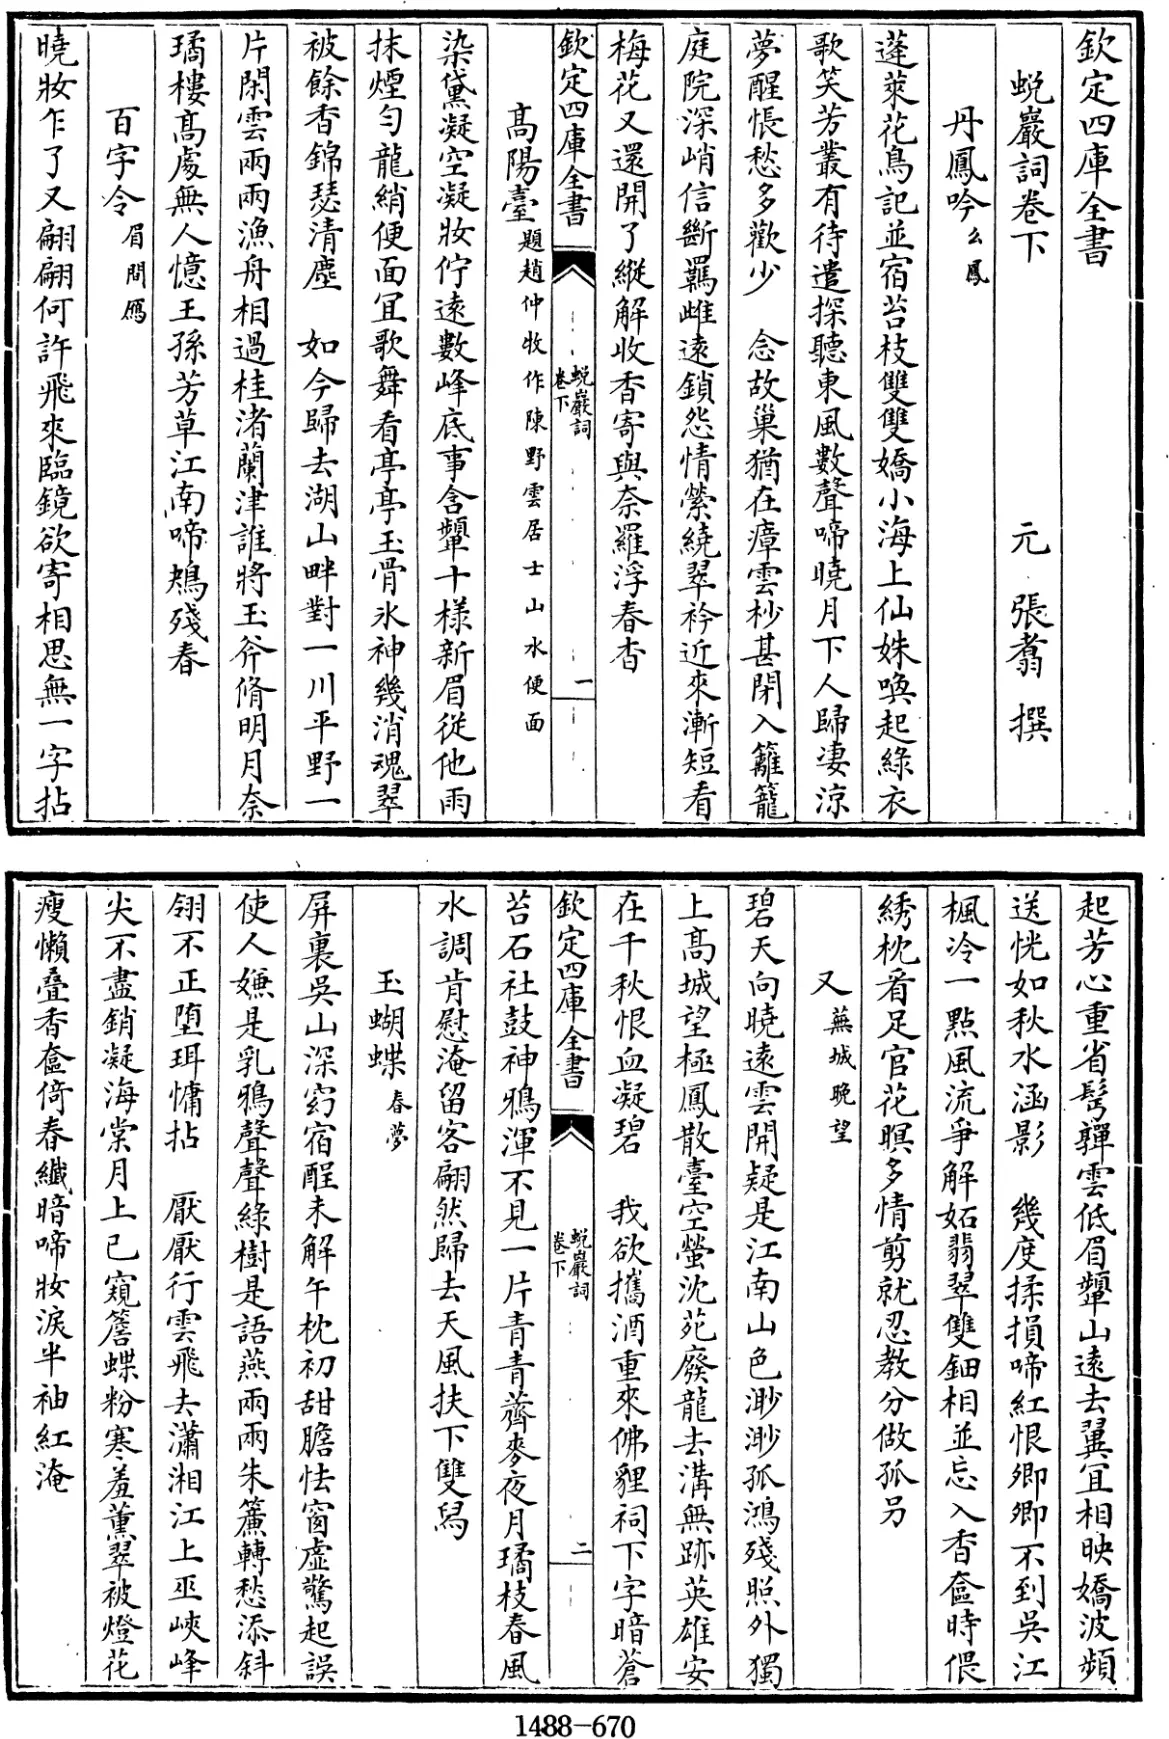 欽定四庫全書
蛻巖詞卷下
元 張翥 撰
丹鳳吟 么鳳
蓬萊花鳥記並宿苔枝雙雙嬌小海上仙姝喚起綠衣
歌笑芳叢有待遣探聽東風數聲啼曉月下人歸凄涼
夢醒悵愁多歡少 念故巢猶在瘴雲杪甚閉入籬籠
庭院深峭信斷羈雌遠鎖怨情縈繞翠衿近來漸短看
梅花又還開了縱解收香寄與奈羅浮春杳
欽定四庫全書
蛻巖詞
卷下
一
高陽臺 題趙仲收作陳野雲居士山水便面
染黛凝空凝妝佇遠數峰底事含顰十様新眉從他雨
抹煙勻龍綃便面宜歌舞看亭亭玉骨氷神幾消魂翠
被餘香錦瑟清塵 如今歸去湖山畔對一川平野一
片閑雲兩兩漁舟相過桂渚蘭津誰將玉斧脩明月奈
璚樓高處無人憶王孫芳草江南啼鴂殘春
百字令 眉間鴈
曉妝乍了又翩翩何許飛來臨鏡欲寄相思無一字拈
起芳心重省髩嚲雲低眉顰山遠去翼宜相映嬌波頻
送恍如秋水涵影 幾度揉損啼紅恨卿卿不到吳江
楓冷一點風流爭解妬翡翠雙鈿相並忘入香奩時偎
綉枕看足官花暝多情剪就忍教分做孤另
又 蕪城晚望
碧天向曉遠雲開疑是江南山色渺渺孤鴻殘照外獨
上高城望極鳳散臺空螢沈苑廢龍去溝無跡英雄安
在千秋恨血凝碧 我欲攜酒重來佛貍祠下字暗蒼
欽定四庫全書
蛻巖詞
卷下
二
苔石社鼓神鴉渾不見一片青青薺麥夜月璚枝春風
水調肯慰淹留客翩然歸去天風扶下雙舄
玉蝴蝶 春夢
屏裏吳山深窈宿酲未解午枕初甜膽怯窗虛驚起誤
使人嫌是乳鴉聲聲綠樹是語燕兩兩朱簾轉愁添斜
翎不正墮珥慵拈 厭厭行雲飛去瀟湘江上巫峽峰
尖不盡銷凝海棠月上已窺簷蝶粉寒羞薰翠被燈花
瘦懶疊香奩倚春纖暗啼妝淚半袖紅淹
1488-670